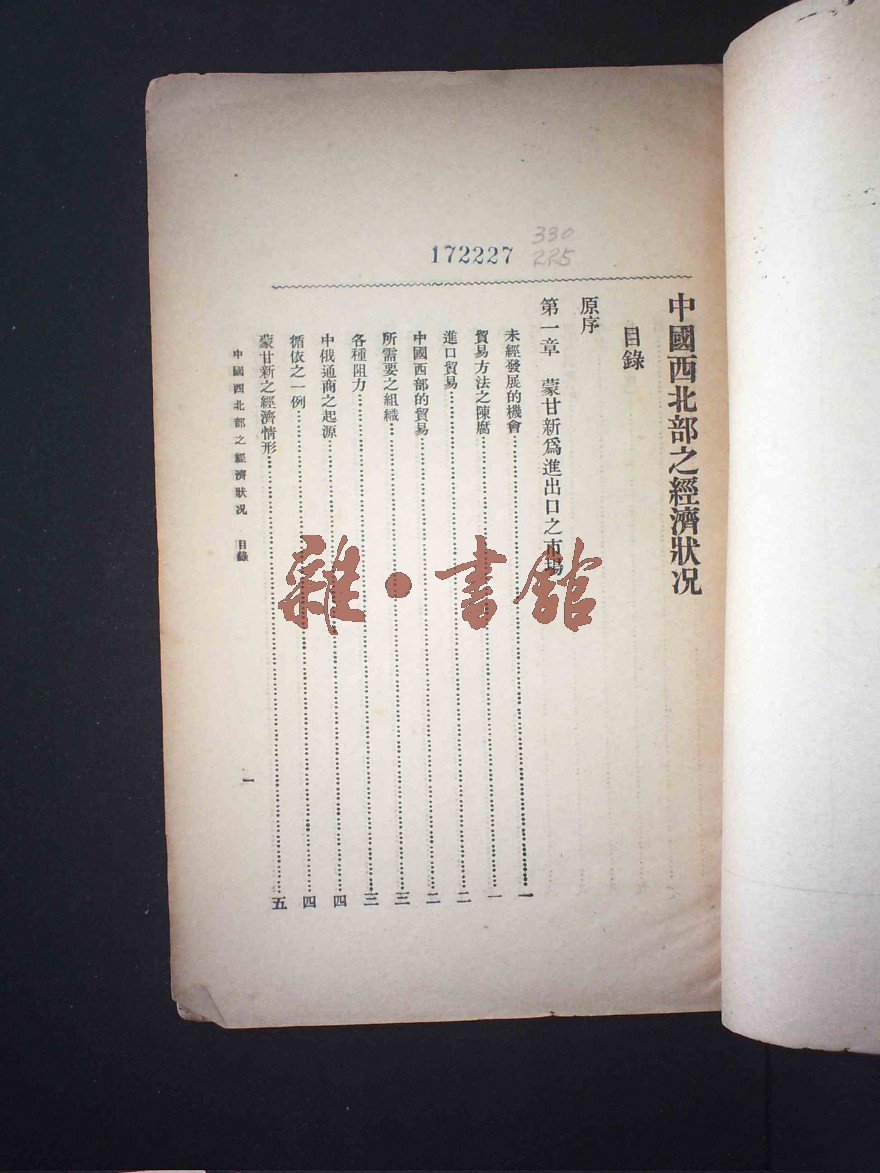 172227
330
225
中國西北部之經濟狀况
目錄
原序
第一章　蒙甘新爲進出口之市場
未經發展的機會…………一
貿易方法之陳腐…………一
進口貿易…………二
中國西部的貿易…………二
所需要之組織…………三
各種阻力…………三
中俄通商之起源…………四
循依之一例…………四
蒙甘新之經濟情形…………五
中國西北部之經濟狀况　目錄
一
雜·書館